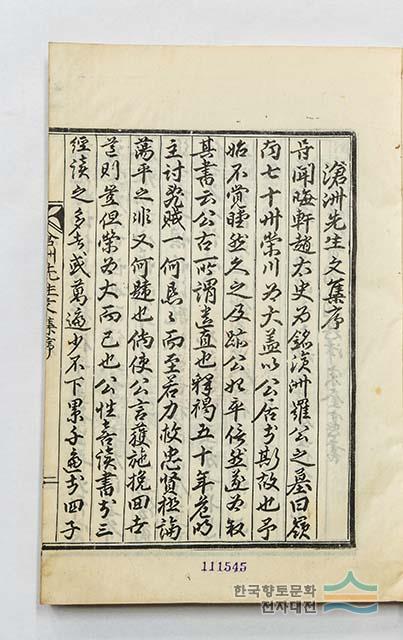 滄洲先生文集序
聞晦軒趙太史爲銘滄洲羅公之墓曰嶺
南七十州榮川爲大盖以公居於斯故也予
始不覺瞠然久之及跡公始平信然遂爲叙
其書云公古所謂遺直也釋褐五十年危明
主討兇賊一何懇懇而至若力救忠賢極論
蕩平之非又何韙也倘使公言獲施挽回古
道則豈但榮爲大而已也公性喜讀書於三
經讀之多者或萬遍少不下累千遍於四子
滄洲先生文集序
一
111545
한국향토문화
전자대전